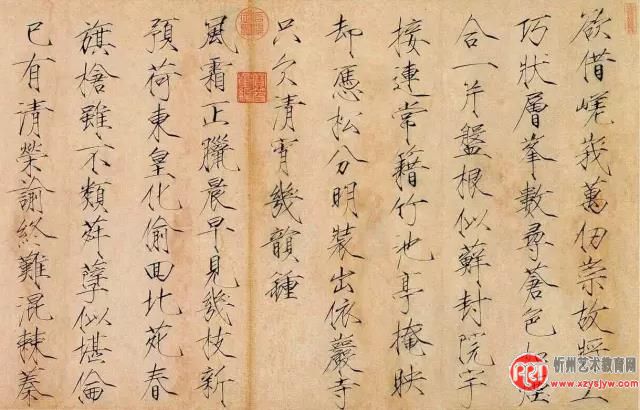 欲借嵯峩萬仞崇故將工
巧狀層峯數尋蒼色如煙
合一片盤根似蘚封院宇
接連常藉竹池亭掩映
却憑松分明裝出依巖寺
只欠清宵幾韻鍾
風霜正臘晨早見幾枝新
預荷東皇化偷回北苑春
旗槍雖不類荈孽似堪倫
已有清榮諭終難混棘蓁
忻州艺术教育网
www.xzysjyw.com